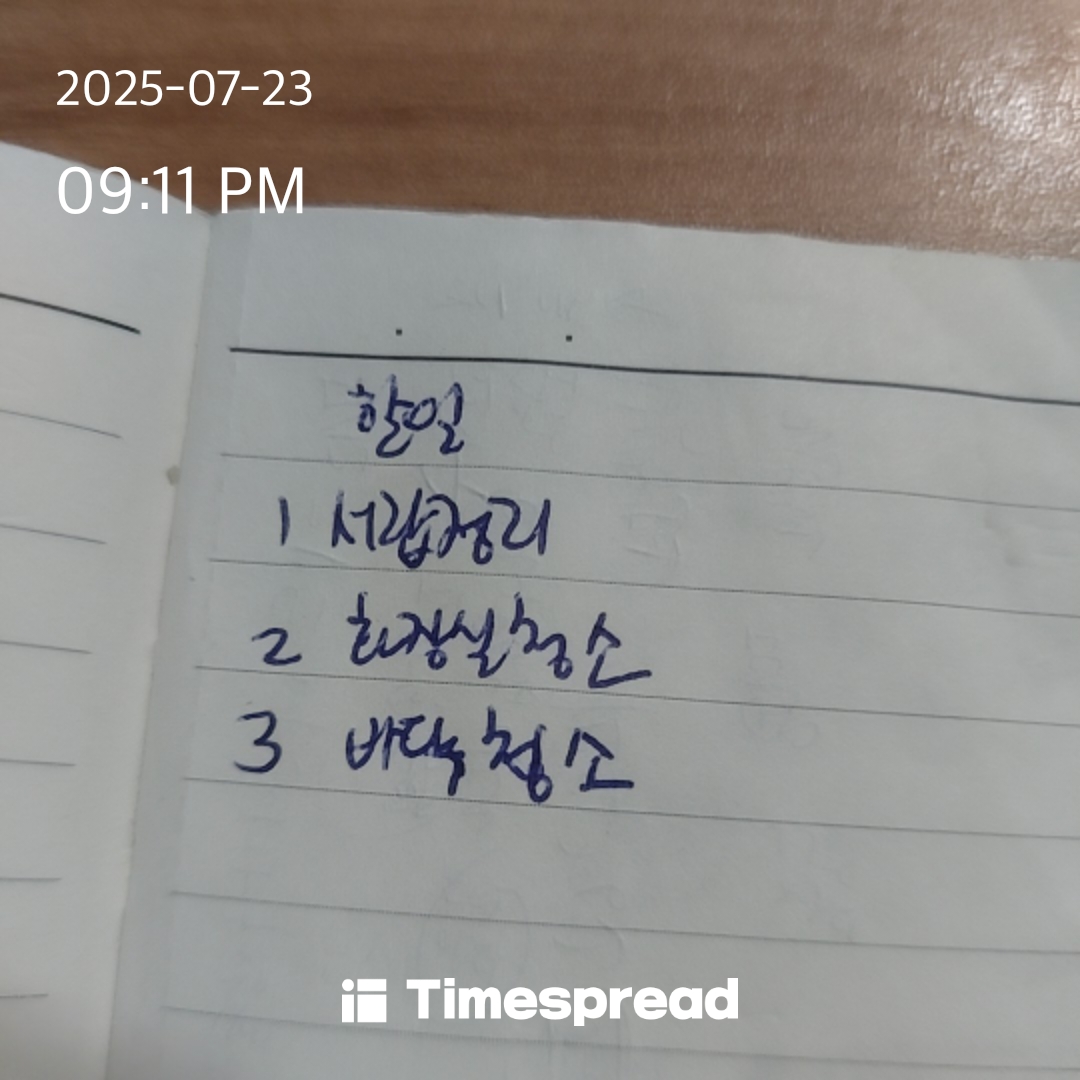 2025-07-23
09:11 PM
할일
1 서랍정리
2 화장실청소
3 바닥청소
Timespread